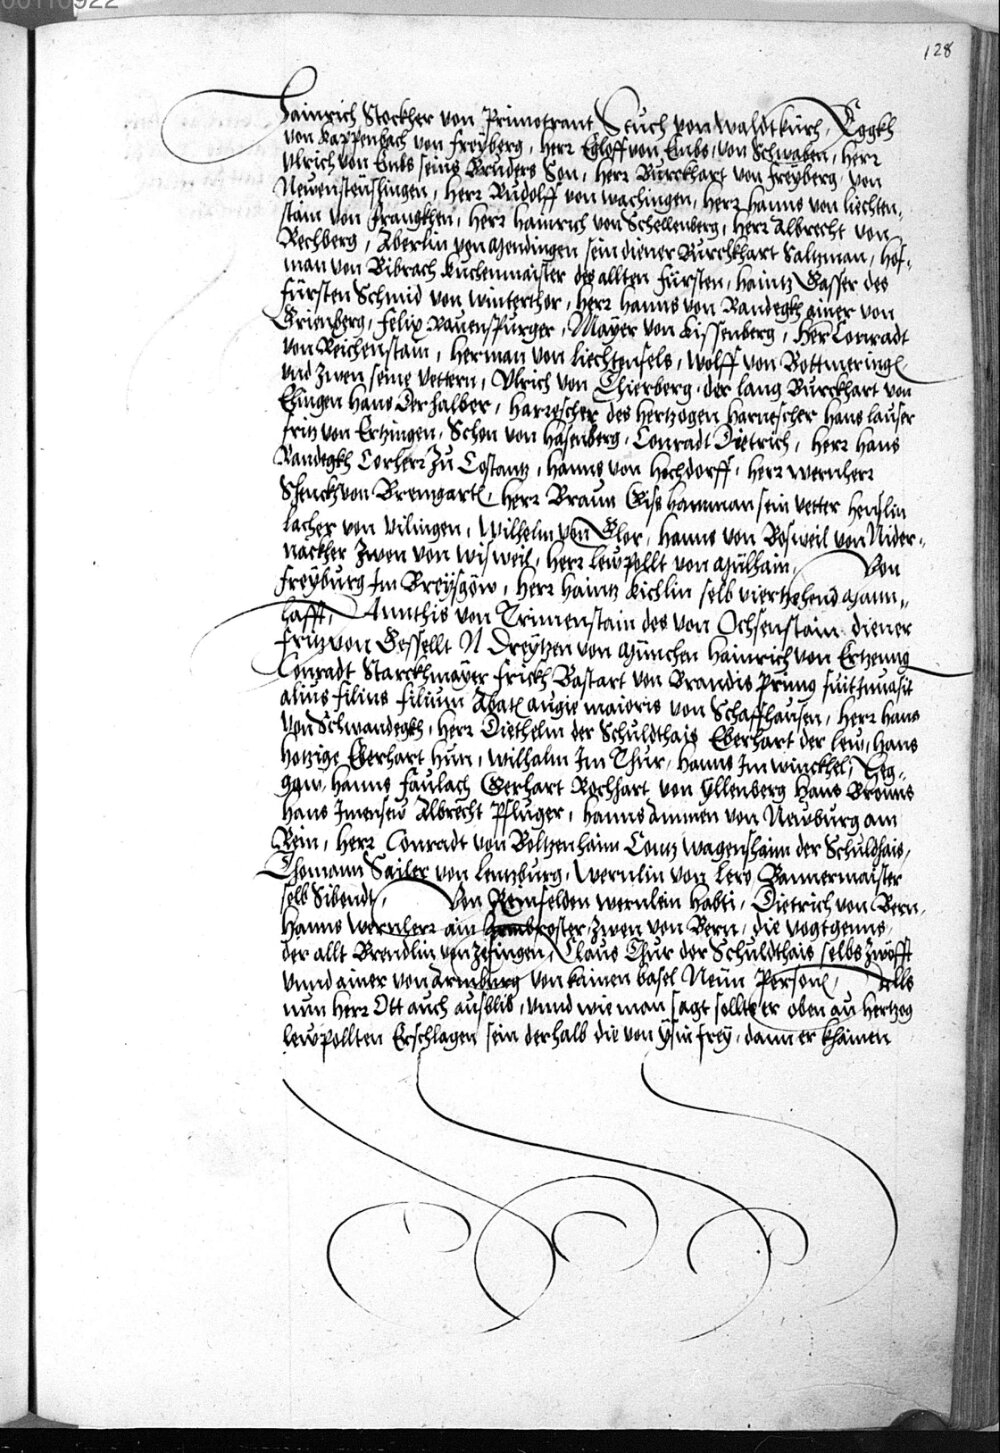 00110922
128
Hainrich Stockher von Primotrant Seuch von Waldtkürch, Eggkh
von Rappenbach von Freyberg, Herr Egloff von Embs, von Schwaben, Herr
Ulrich von Embs seins Bruders Son, Herr Burckhart von Freyberg, von
Newensteüslingen, Herr Rudolff von Wachingen, Herr Hanns von Liechten,
stain von Franngkhen, Herr Hainrich von Schellenberg, Herr Albrecht von
Rechberg, Aberlin von Mendingen sein diener Burckhart Saltzman, Hof,,
man von Bibrach Kuchenmaister des allten Fürsten, Haintz Gasser des
Fürsten Schmid von Winterthor, Herr Hanns von Randegkh ainer von
Grienberg, Felix Rauenspurger, Mayer von Kissenberg, Herr Conradt
von Reichenstain, Herman von Liechtenfels, Wolff von Bottmeringen
vnd zwen seine vettern, Ulrich von Thierberg, der lang Burckhart von
Ehingen Hans Oerhalber, Harnescher des Hertzogen Harnescher Hans Lauser
Fritz von Ertzingen, Schon von Hasenberg, Conradt Dietrich, Herr Hans
Randegkh Corherr zu Costantz, Hanns von Hochdorff, Herr Wernherr
Schenckh von Bremgarten, Herr Braun Giss Hamman sein vetter Henslin
Lacher von Vilingen, Wilhelm von Elor, Hanns von Bosweil von Nider,,
nackher zwen von Wisweil, Herr Lewpollt von Mülhain, Von
Freyburg Im Breysgöw, Herr Haintz Kichlin selb viertzehend Mann,,
hafft, Annthis von Trimenstain des von Ochsenstain diener
Fritz von Gessellt N Dreytzen von München Hainrich von Ertzenng
Conradt Starckhmayer Frickh Bastart von Brandis primus fuit Inuasit
alius filius filium Abaten augie maioris von Schaffhausen, Herr Hans
von Schwandegkh, Herr Diethelm der Schuldthais Eberhart der Lew, Hans
Hotzige Eberhart Hun, Wilhalm Im Thur, Hanns Im Winckhel, Heg,,
gaw, Hanns Faulach Gerhart Rochhart von Yllenberg Hans Brouns
Hans Imensew Albrecht Pfluger, Hanns Ammen von Newburg am
Rein, Herr Conradt von Boltzenhaim Contz Wagenshaim der Schuldhais,
Thomann Sailer von Lentzburg, Wernlin von Lero Bannermaister
selb Sibendt, Von Reinfelden Wernlein Habti, Dietrich von Bern,
Hanns Wernherr ain Armbroster, zwen von Bern, die Vogtgenus,
der allt Brendlin von Zefingen, Claus Thur der Schuldthais selbs zwölfft
vnnd ainer von Armburg von kainen Basel Neun Personen, Alls
nun Herr Ott auch ausblib, vnnd wie man sagt sollt er oben an Hertzog
Lewpollten Erschlagen sein derhalb die von Ysin frey, dann er khainen